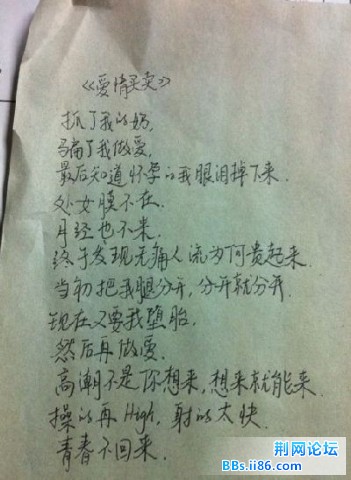 《爱情买卖》
抓了我的奶,
骗了我做爱,
最后知道怀孕的我眼泪掉下来.
处女膜不在,
月经也不来.
终于发现无痛人流为何贵起来.
当初把我腿分开,分开就分开.
现在又要我堕胎.
然后再做爱.
高潮不是你想来,想来就能来.
操的再High,射的太快.
青春不回来.
荆网论坛
BBs.ii86.com